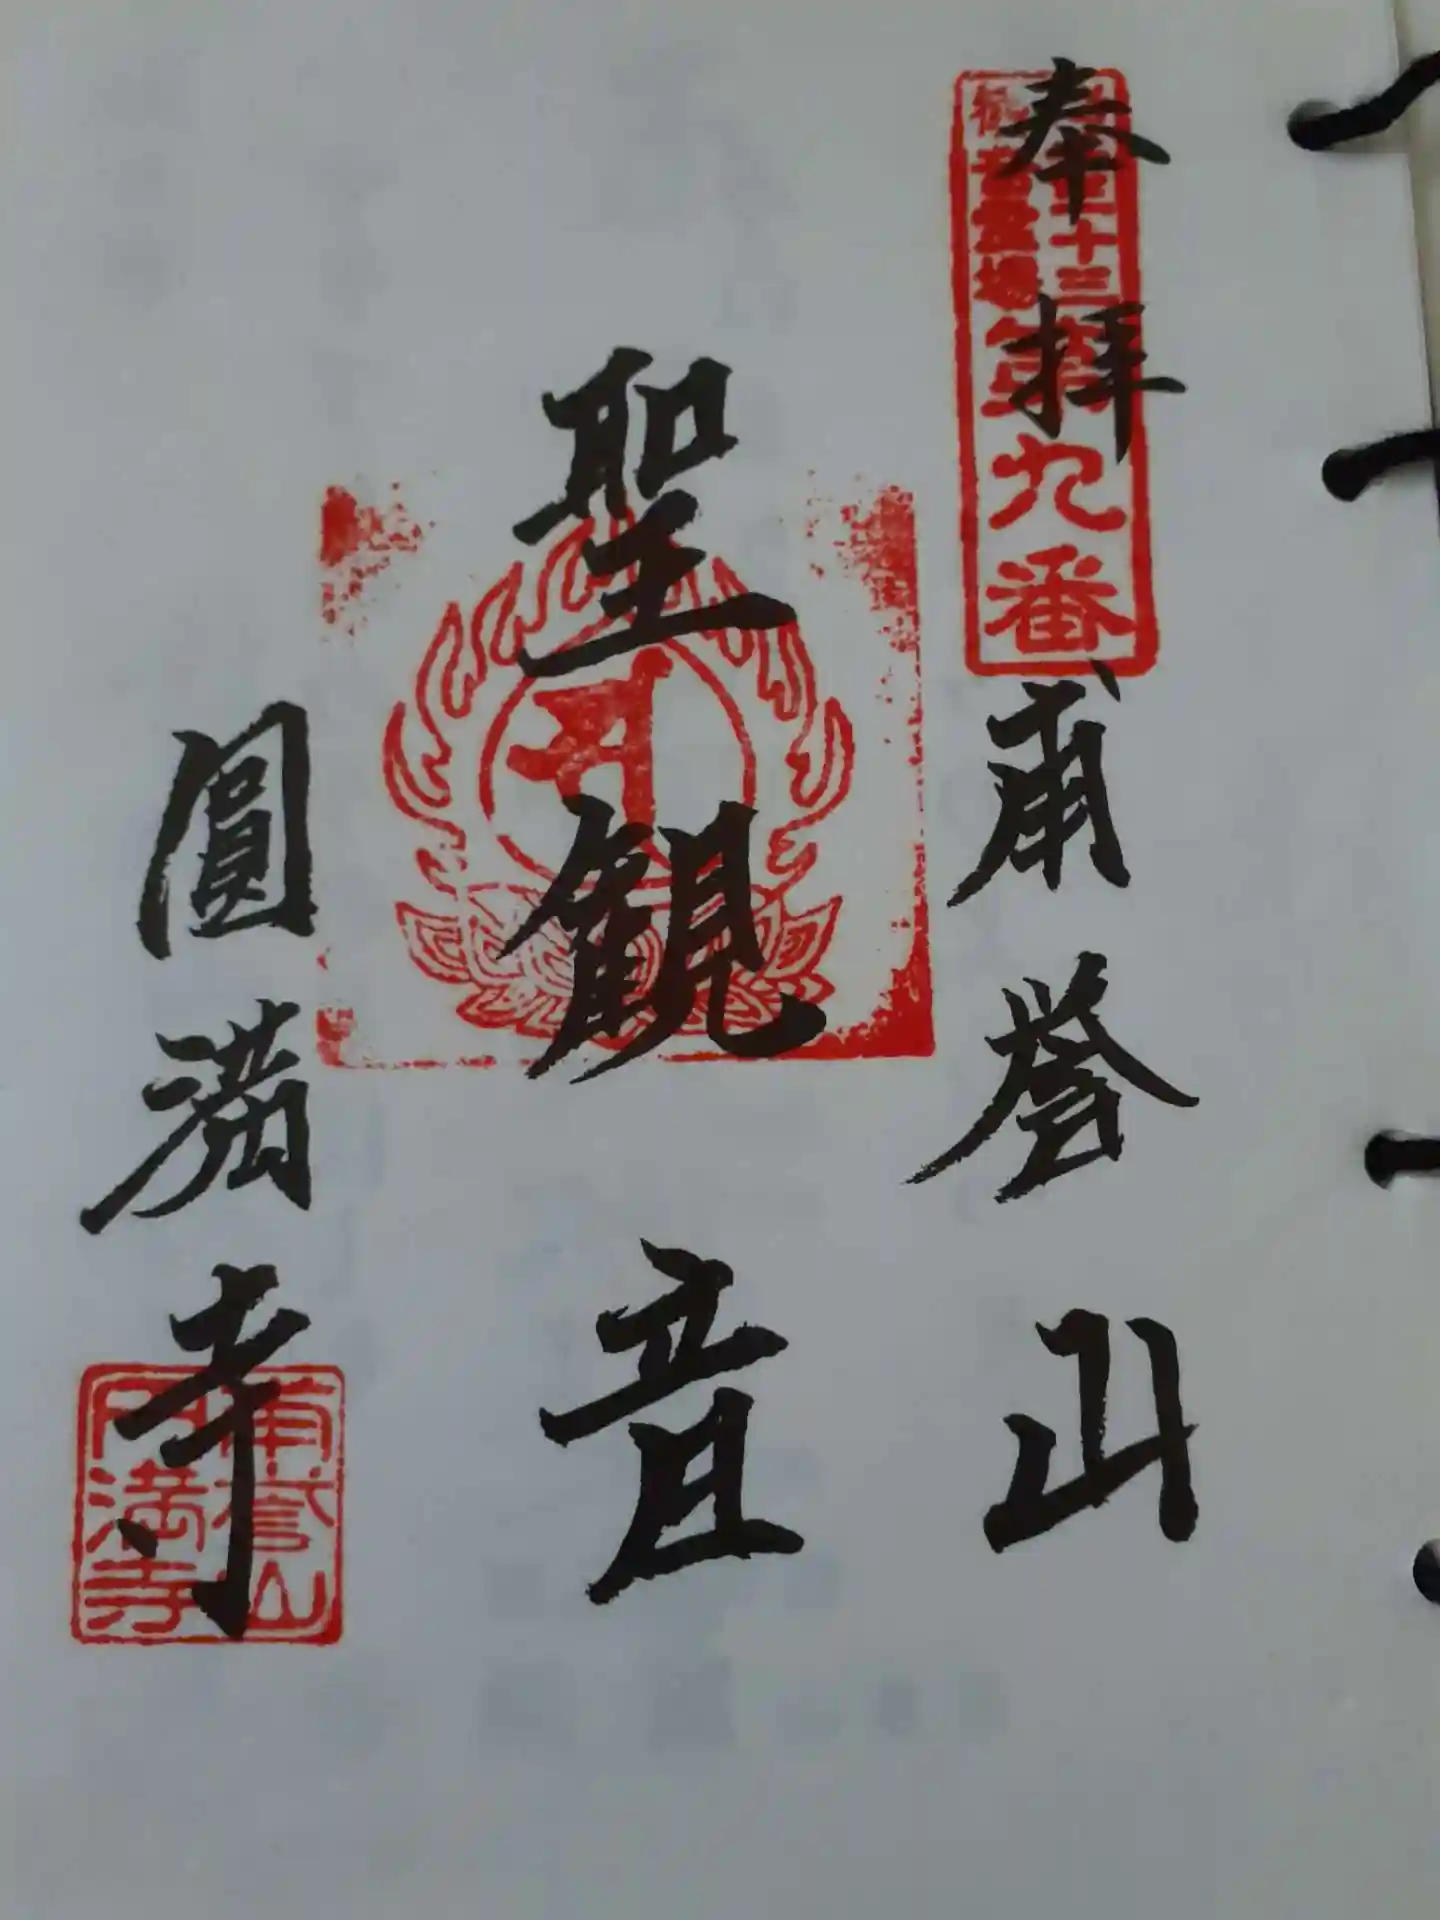 奉拝
三十三
観音霊場
第九番
甫誉山
聖観音
圓満寺
甫誉山
円満寺